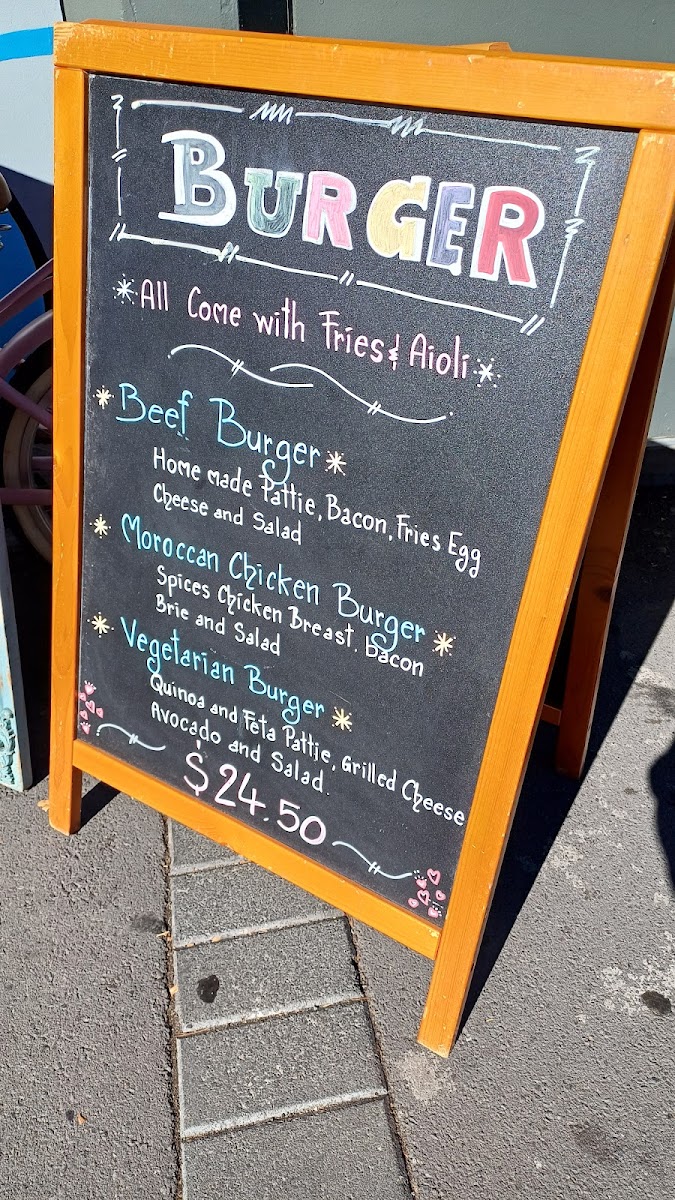 BURGER
All Come with Fries & Aioli
Beef Burger
Home made Pattie, Bacon, Fries Egg
Cheese and Salad
Moroccan Chicken Burger
Spices Chicken Breast. bacon
Brie and Salad
Vegetarian Burger
Quinoa and Feta Pattie, Grilled Cheese
Avocado and Salad.
$24.50